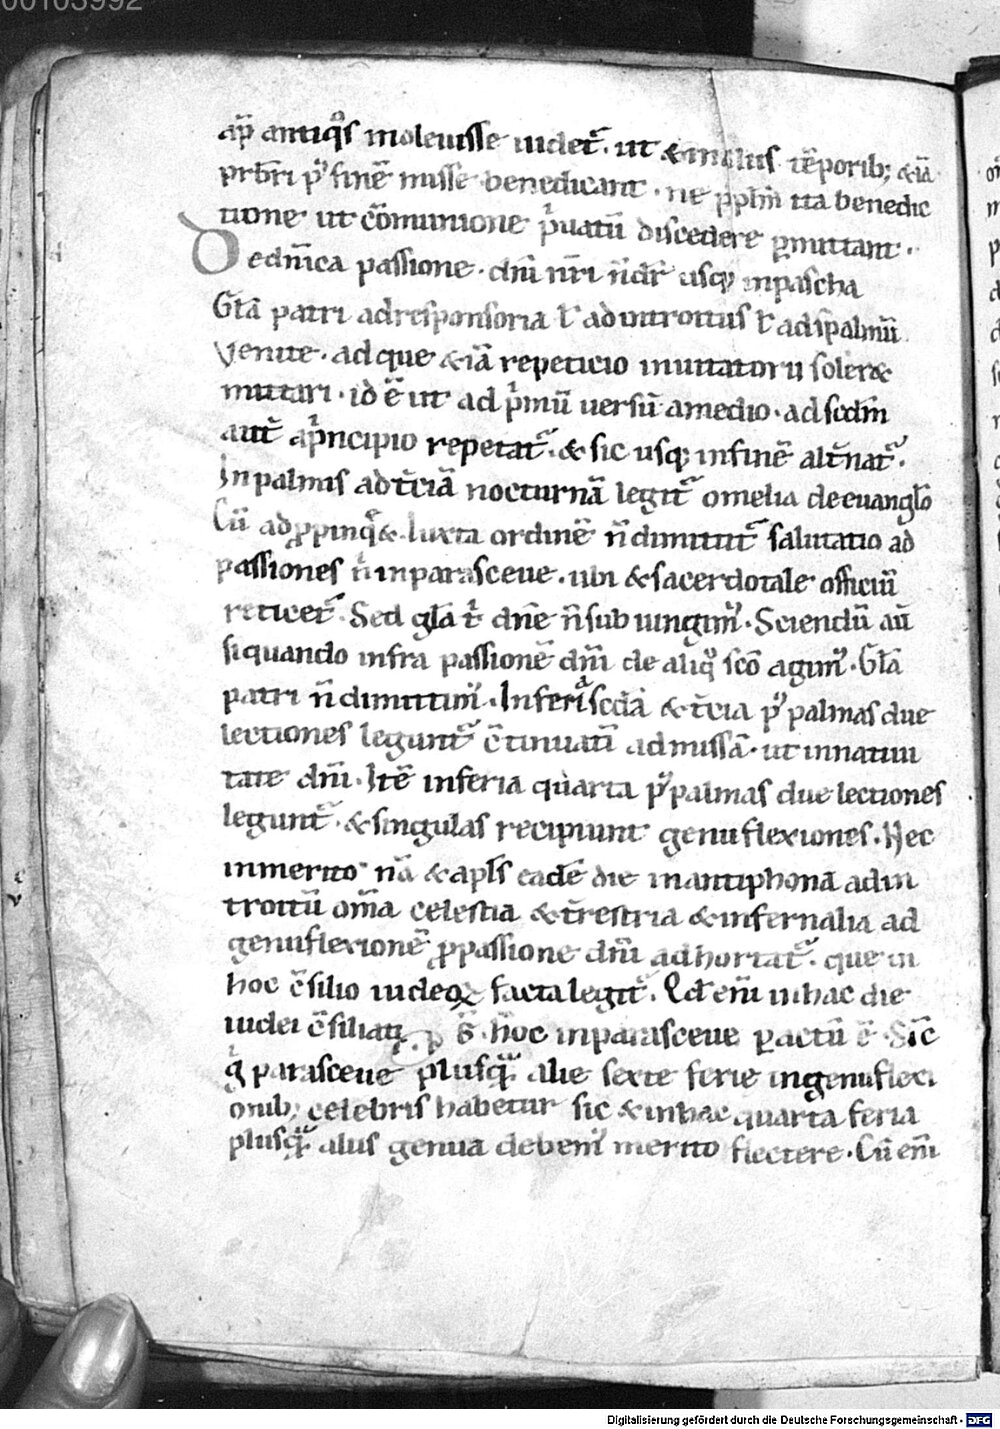 00103992
ap̄ antiq̊s moleuisse uidet᷑. ut & in aliis tēporib; & iā
prb̄ri p᷒ finē misse benedicant. ne ppl̄m ita benedic
tione ut cōmunione pͥuatū discedere ꝑmittant.
De dn̄ica passione. dn̄i nr̄i n̄ dr̄ usq; in pascha
Gl̄a patri ad responsoria ł ad introitus ł ad ps̄almū
Venite. ad que & iā repeticio inuitatorii solet &
mutari. id ē ut ad pͥmū uersū a medio. ad scdm̄
aut̄ a pͥncipio repetat᷑. & sic usq; in finē alt̄nat᷑.
In palmis ad t̄ciā nocturnā legit᷑ omelia de euangl̄o
Cū adꝓpinq̄&. Iuxta ordinē n̄ dimittit᷑ salutatio ad
passiones n̄ in parasceue. ubi & sacerdotale officiū
reticet᷑. Sed gl̄a t dn̄e n̄ sub iungim᷒. Sciendū aū
si quando infra passionē dn̄i de aliq̊ sc̄o agim᷒. Gl̄a
patri n̄ dimittim᷒. In feria scdā & t̄cia p᷒ palmas due
lectiones legunt᷑ c̄tinuati ad missā. ut in natiui
tate dn̄i. Itē in feria quarta p᷒ palmas due lectiones
legunt᷑. & singulas recipiunt genuflexiones. Nec
inmerito nā & apl̄s eadē die in antiphona ad in
troitū om̄a celestia & t̄restria & infernalia ad
genuflexionē ꝓ passione dn̄i adhortat᷑. que in
hoc c̄silio iudeoꝝ facta legit᷑. Qd̄ eni̅ in hac die
iudei c̄siliati hoc in parasceue ꝑactū ē. Sic
gͥ parasceue plusq̄ alie sexte ferie in genuflexi
onib; celebris habetur sic & in hac quarta feria
plusq̄ aliis genua debem᷒ merito flectere. Cū eni̅
Digitalisierung gefördert durch die Deutsche Forschungsgemeinschaft - DFG